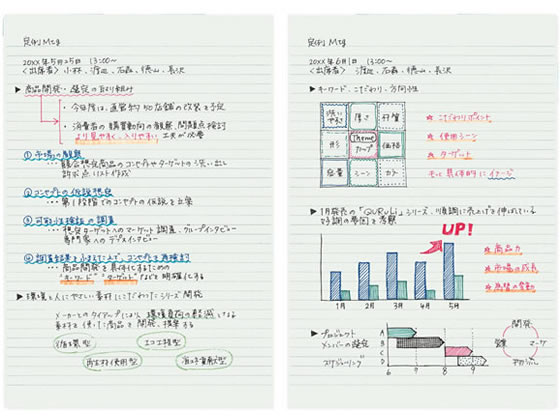 定例Mtg
20XX年5月25日 13:00〜
〈出席者〉小林、渡辺、石森、徳山、長沢
▶商品開発・選定の取り組み
・今年度は、直営約50店舗の改装を予定
・消費者の購買動向の観察、問題点検討
より見やすく、入りやすい 工夫が必要
① 市場の観察
競合想定商品のコンセプトやターゲットの洗い出し
訴求点リスト作成
② コンセプトの仮説想定
第1段階でのコンセプトの仮説を立案
③ 可能性検証の調査
想定ターゲットへのマーケット調査、グループインタビュー
専門家へのデプスインタビュー
④ 調査結果を小まとめし、コンセプトを再検討
商品開発を具体化するための
"キーワード" "ターゲット"などを明確化する
▶環境と人にやさしい素材にこだわったシリーズ開発
メーカーとのタイアップにより、環境負荷の軽減となる
素材を使った商品を開発、提案する
省エネ型
エコ工程型
再生材使用型
定例Mtg
20XX年6月1日 13:00〜
〈出席者〉渡辺、石森、徳山、長沢
▶キーワード、こだわり、方向性
洗いやすさ
厚さ
材質
形
Theme
カップ
価格
容量
シーン
カラー
★ こだわりポイント
★ 使用シーン
★ ターゲット
もっと具体的にイメージ
▶1月発売の「QURULi」シリーズ、順調に売上げを伸ばしている
好調の要因を考察
UP!
1月
2月
3月
4月
5月
★ 商品力
★ 市場の成長
▶プロジェクト
メンバーの選定
スケジューリング
A
B
C
D
6
7
8
9
開発
営業
マーケ